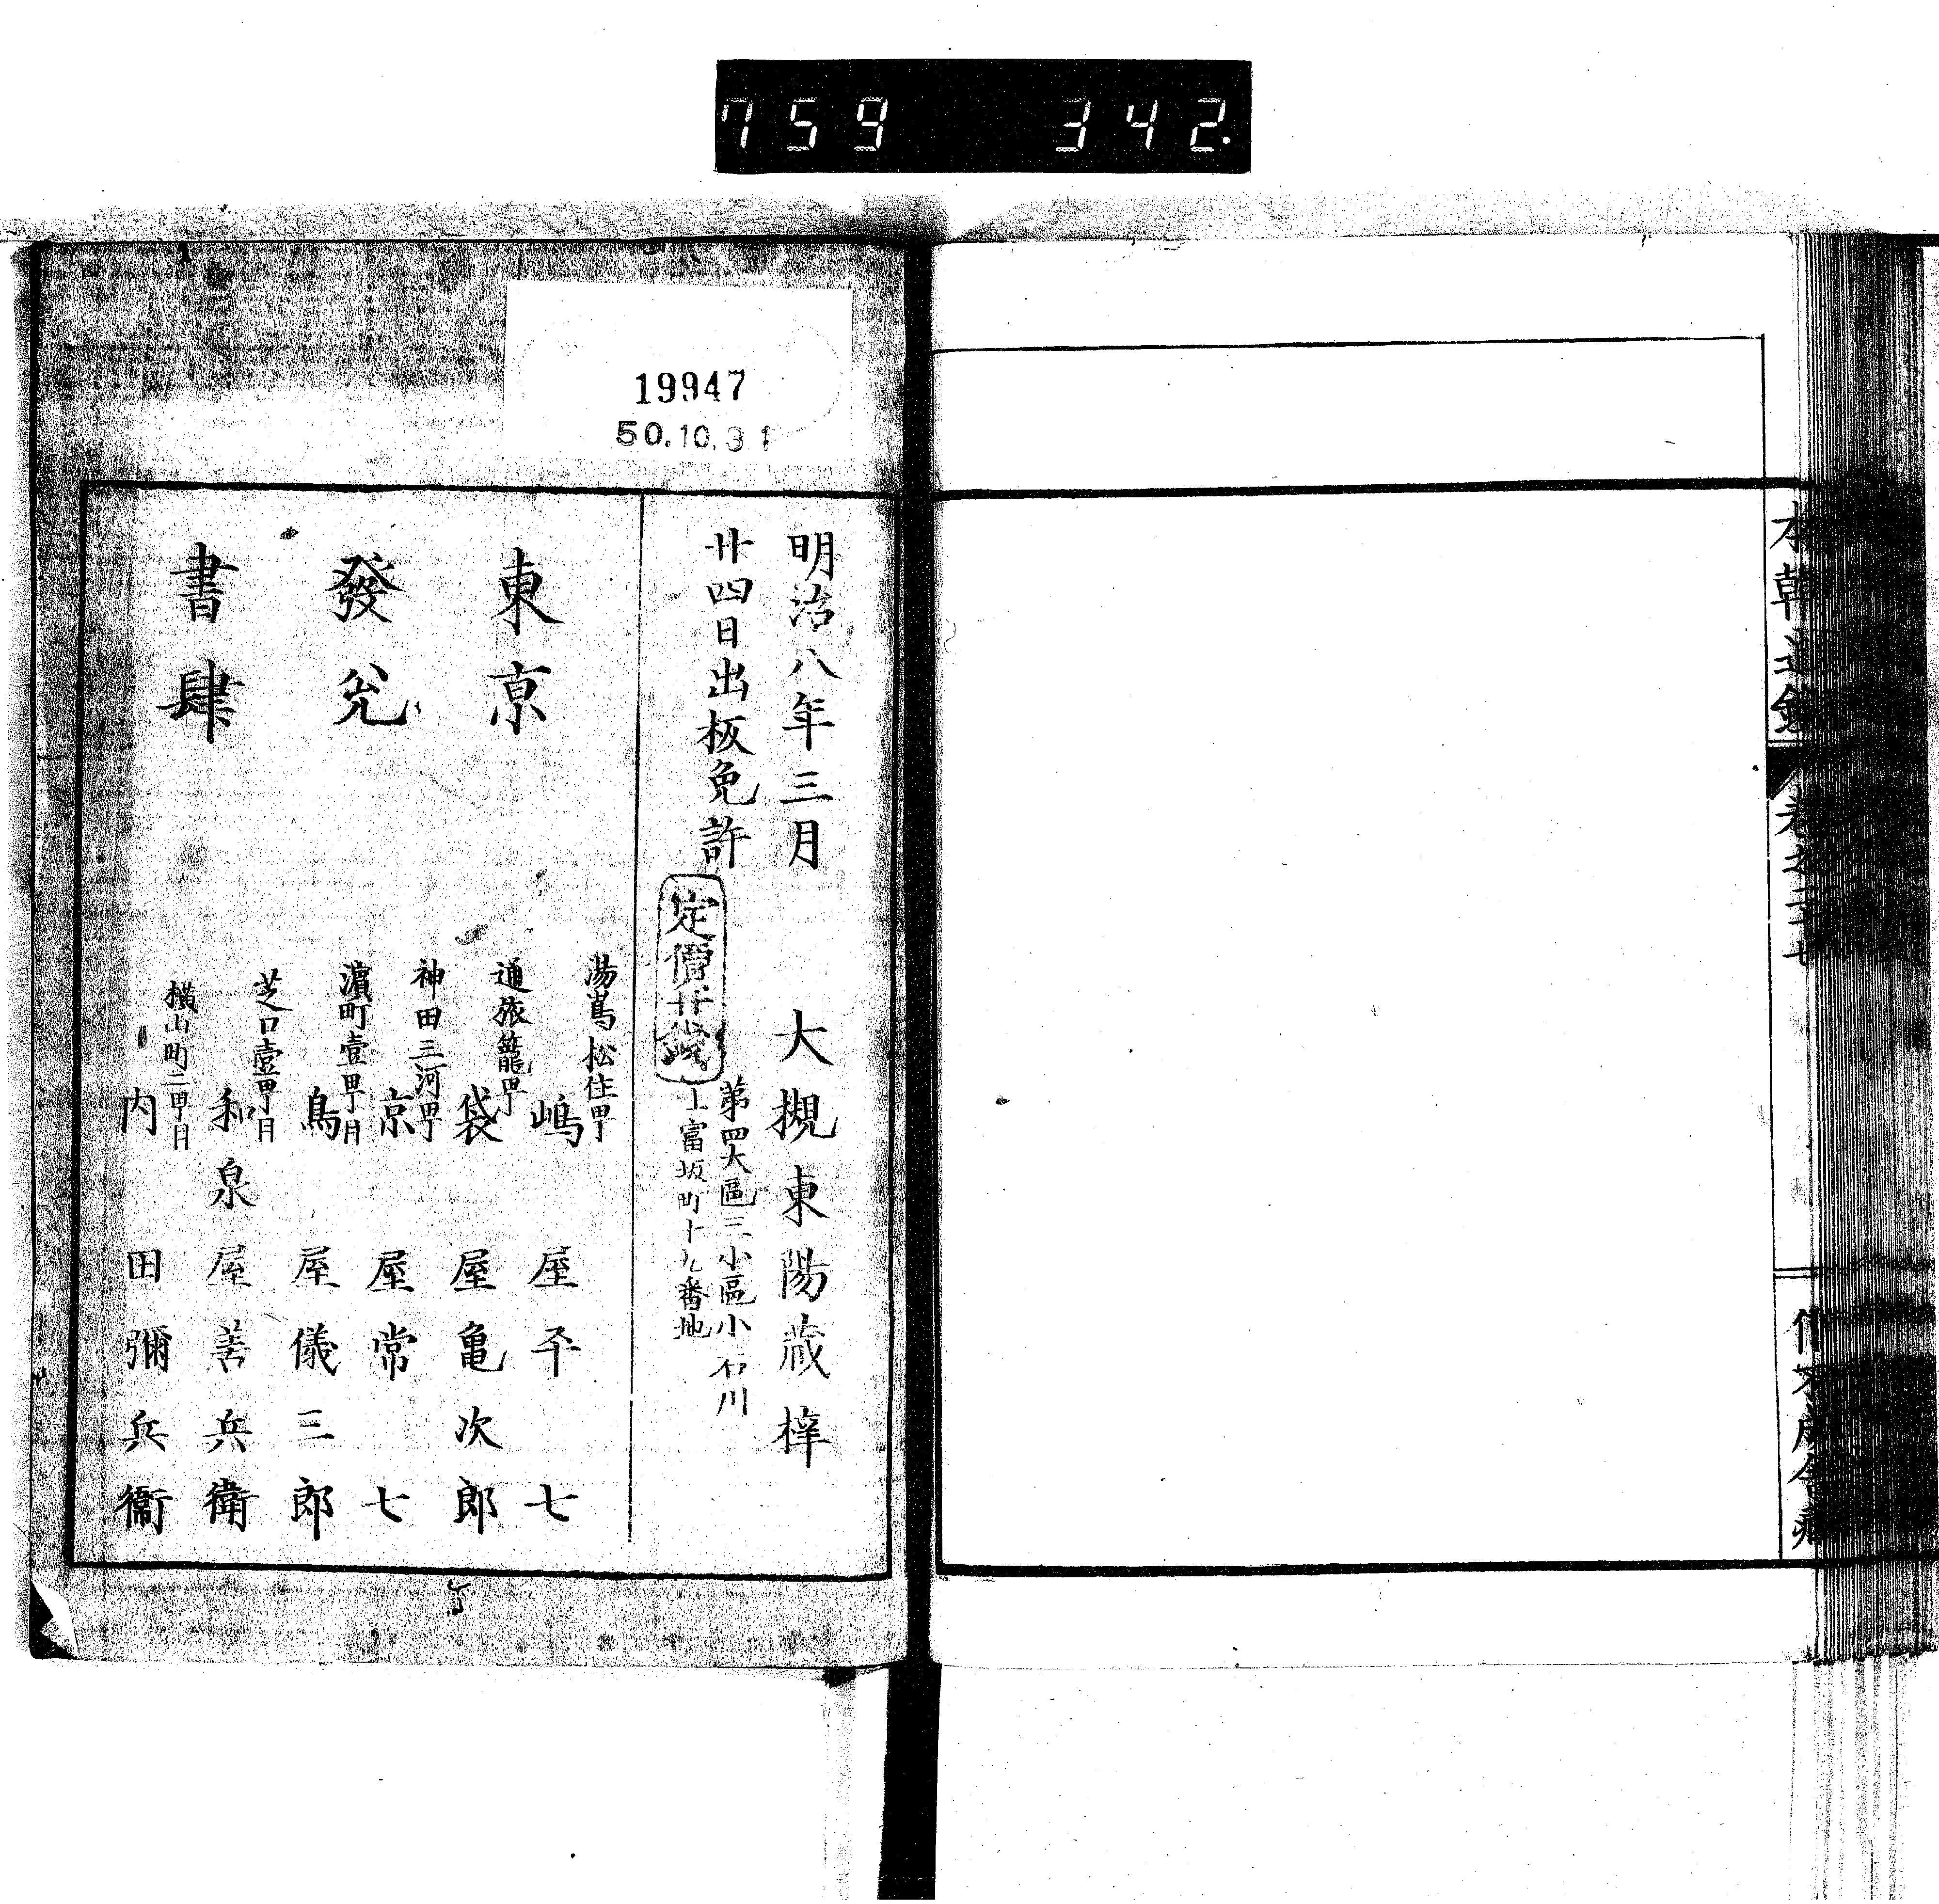 759 342.
19947
50.10.31
明治八年三月
廿四日出板免許
定價廿錢
大槻東陽蔵梓
第四大區三小區小石川
上富坂町十九番地
東京
發兌
書肆
湯嶌松住町
嶋屋平七
通旅籠町
袋屋亀次郎
神田三河町
京屋常七
濵町壹町目
鳥屋儀三郎
芝口壹町目
和泉屋善兵衛
横山町二町目
内田彌兵衞
卷之二十七